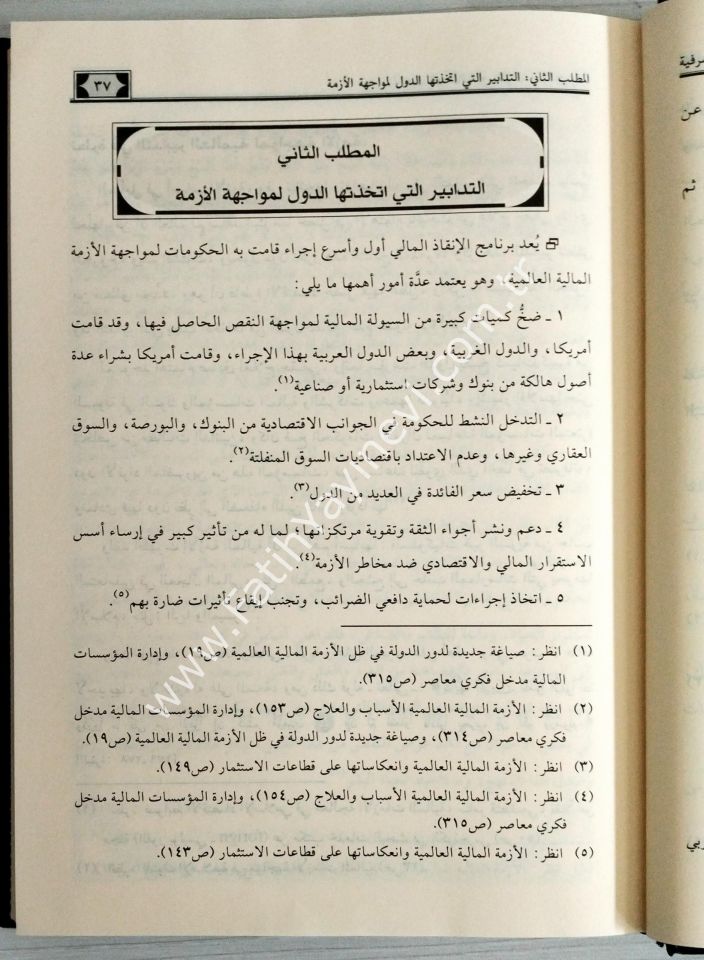 المطلب الثاني: التدابير التي اتخذتها الدول لمواجهة الأزمة
٣٧
المطلب الثاني
التدابير التي اتخذتها الدول لمواجهة الأزمة
يُعد برنامج الإنقاذ المالي أول وأسرع إجراء قامت به الحكومات لمواجهة الأزمة
المالية العالمية، وهو يعتمد عدَّة أمور أهمها ما يلي:
١ ـ ضخُّ كميات كبيرة من السيولة المالية لمواجهة النقص الحاصل فيها، وقد قامت
أمريكا، والدول الغربية، وبعض الدول العربية بهذا الإجراء، وقامت أمريكا بشراء عدة
أصول هالكة من بنوك وشركات استثمارية أو صناعية(١).
٢ ـ التدخل النشط للحكومة في الجوانب الاقتصادية من البنوك، والبورصة، والسوق
العقاري وغيرها، وعدم الاعتداد باقتصاديات السوق المنفلتة(٢).
٣ ـ تخفيض سعر الفائدة في العديد من الدول(٣).
٤ ـ دعم ونشر أجواء الثقة وتقوية مرتكزاتها؛ لما له من تأثير كبير في إرساء أسس
الاستقرار المالي والاقتصادي ضد مخاطر الأزمة(٤).
٥ ـ اتخاذ إجراءات لحماية دافعي الضرائب، وتجنب إيقاع تأثيرات ضارة بهم(٥).
(١) انظر: صياغة جديدة لدور الدولة في ظل الأزمة المالية العالمية (ص١٩)، وإدارة المؤسسات
المالية مدخل فكري معاصر (ص٣١٥).
(٢) انظر: الأزمة المالية العالمية الأسباب والعلاج (ص١٥٣)، وإدارة المؤسسات المالية مدخل
فكري معاصر (ص٣١٤)، وصياغة جديدة لدور الدولة في ظل الأزمة المالية العالمية (ص١٩).
(٣) انظر: الأزمة المالية العالمية وانعكاساتها على قطاعات الاستثمار (ص١٤٩).
(٤) انظر: الأزمة المالية العالمية الأسباب والعلاج (ص١٥٤)، وإدارة المؤسسات المالية مدخل
فكري معاصر (ص٣١٥).
(٥) انظر: الأزمة المالية العالمية وانعكاساتها على قطاعات الاستثمار (ص١٤٣).
www.fatihyayinevi.com.tr
عن
ثم